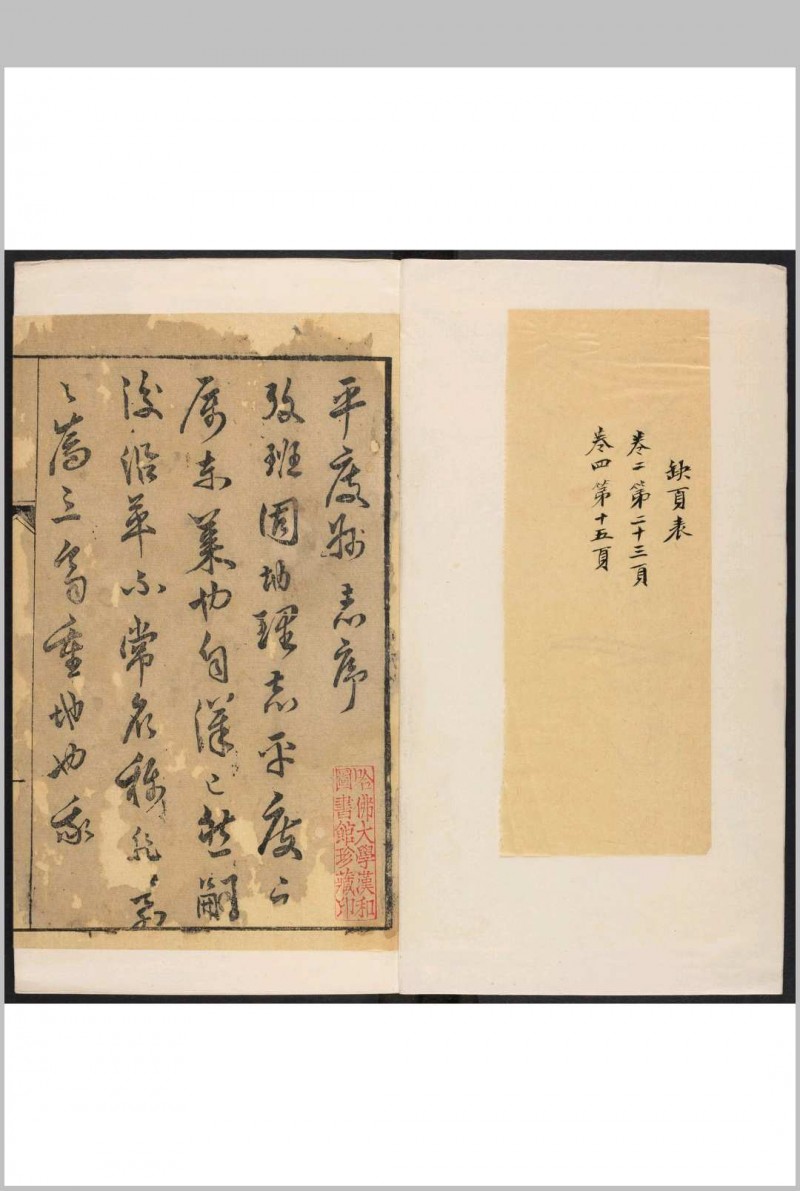 缺頁表
卷二第二十三頁
卷四第十五頁
平度志序
攷班固地理志平度之
屬東萊也自漢已然嗣
後沿革不常名稱
重地也我
哈佛大學漢和
圖書館珍藏印